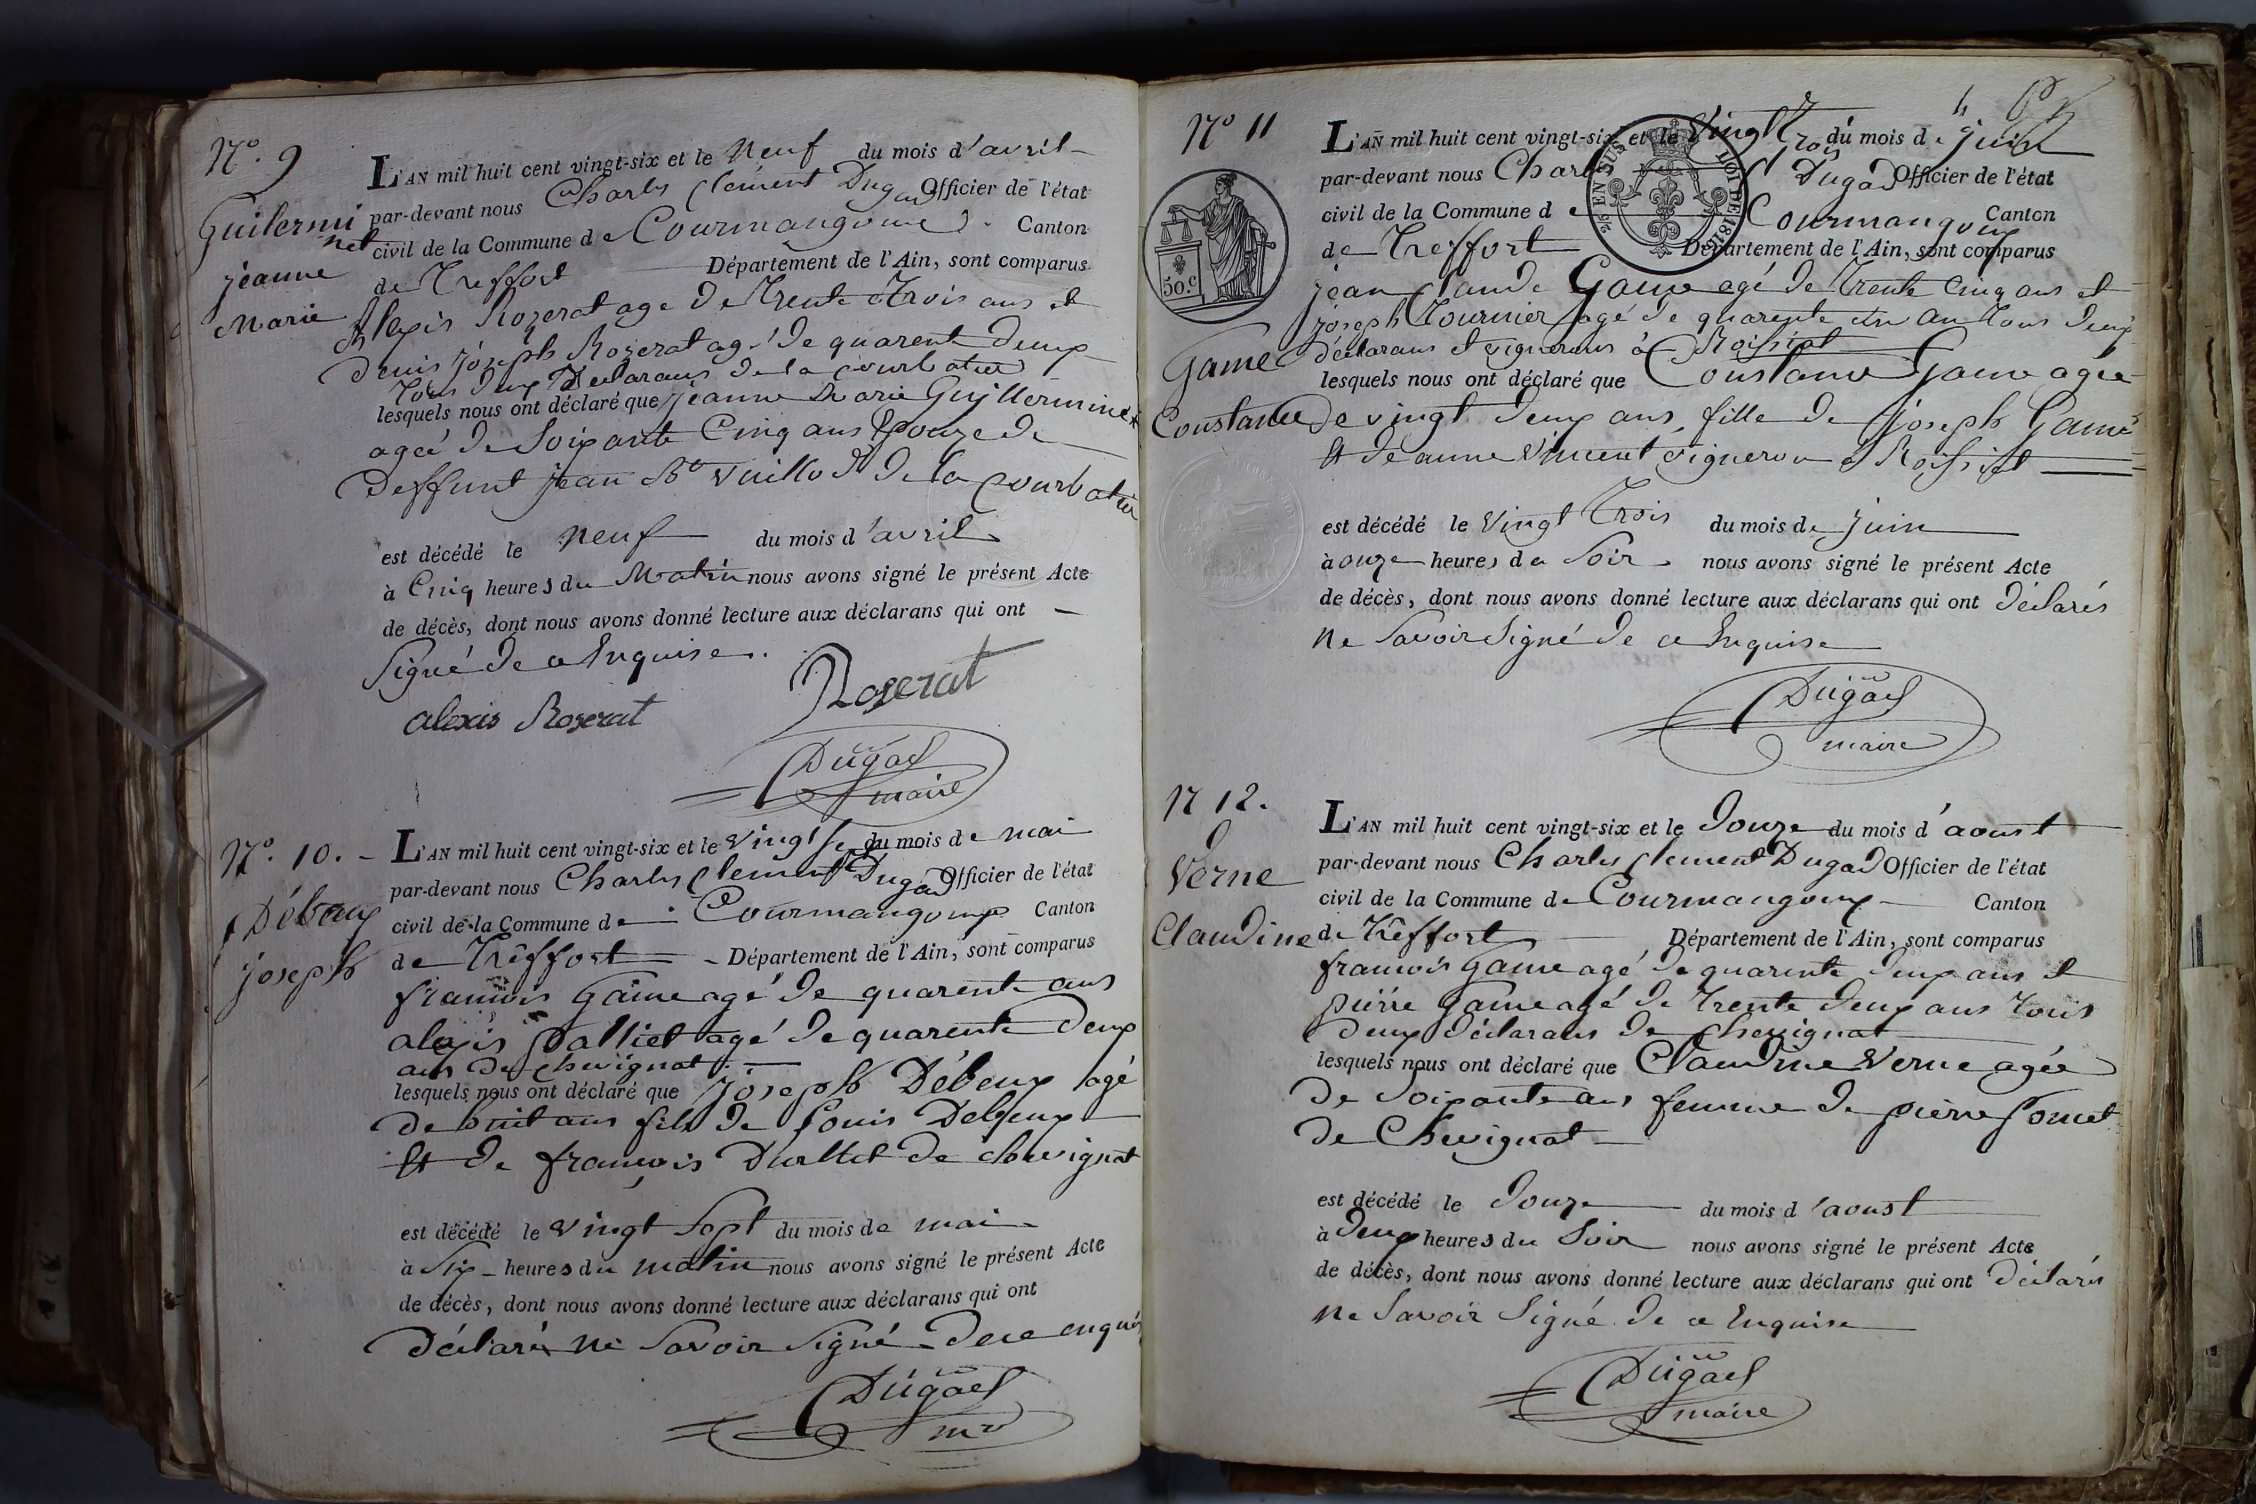 N.° 9
Guilermi
net
jeanne
Marie
L'AN mil huit cent vingt-six et le neuf du mois d'avril
par-devant nous Charles Clement Dugad Officier de l'état
civil de la Commune de Courmangoux Canton
de Treffort Département de l'Ain, sont comparus
Alexis Rozerat age de Trente Trois ans et
Denis Joseph Rozerat agé de quarent deux
Tous deux Declarans de la courbatier
lesquels nous ont déclaré que jeanne Marie Guyllerminet
ageé de Soixante Cinq ans Epouze de
deffunt jean Bte vuillod de la courbatier
est décédé le neuf du mois d'avril
à Cinq heures du Matin nous avons signé le présent Acte
de décès, dont nous avons donné lecture aux déclarans qui ont
Signé de ce Enquise.
alexis Rozerat Rozerat
Dugad
maire
N.° 10.
Débeux
joseph
L'AN mil huit cent vingt-six et le vingt sept du mois de mai
par-devant nous Charles Clement Dugad Officier de l'état
civil de la Commune de Courmangoux Canton
de Trêffort Département de l'Ain, sont comparus
francois Game agé de quarente ans
alexis palliet agé de quarente deux
ans de chevignat
lesquels nous ont déclaré que joseph Débeux agé
de huit ans fils de Louis Debeux
Et de françois Durltet de chevignat
est décédé le vingt Sept du mois de mai
à Six heures du matin nous avons signé le présent Acte
de décès, dont nous avons donné lecture aux déclarans qui ont
Déclarés ne Savoir Signé de ce enquis
Dugad
mre
4
N° 11
50 c
2e EN SUS LOI DE 1816
Game
Constance
L'AN mil huit cent vingt-six et le vingt Trois du mois de juin
par-devant nous Charles Dugad Officier de l'état
civil de la Commune de Courmangoux Canton
de Treffort Département de l'Ain, sont comparus
jean Claude Game agé de Trente Cinq ans et
joseph Tournier agé de quarente un an Tous deux
déclarans et vignerons à Roissiat
lesquels nous ont déclaré que Constance Game agée
de vingt deux ans, fille de joseph Game
Et de anne Vincent vigneron à Roissiat
est décédé le vingt Trois du mois de juin
à onze heures du Soir nous avons signé le présent Acte
de décès, dont nous avons donné lecture aux déclarans qui ont déclarés
ne Savoir Signé de ce Enquise
Dugad
maire
N 12.
Verne
Claudine
L'AN mil huit cent vingt-six et le douze du mois d'aoust
par-devant nous Charles Clement Dugad Officier de l'état
civil de la Commune de Courmangoux Canton
de Trêffort Département de l'Ain, sont comparus
francois Game agé de quarente deux ans et
pierre Game agé de Trente deux ans Tous
deux déclarans de Chevignat
lesquels nous ont déclaré que Claudine Verne agée
de Soixante ans femme de pierre pomet
de Chevignat
est décédé le douze du mois d'aoust
à deux heures du Soir nous avons signé le présent Acte
de décès, dont nous avons donné lecture aux déclarans qui ont déclarés
ne Savoir Signé de ce Enquise
Dugad
maire